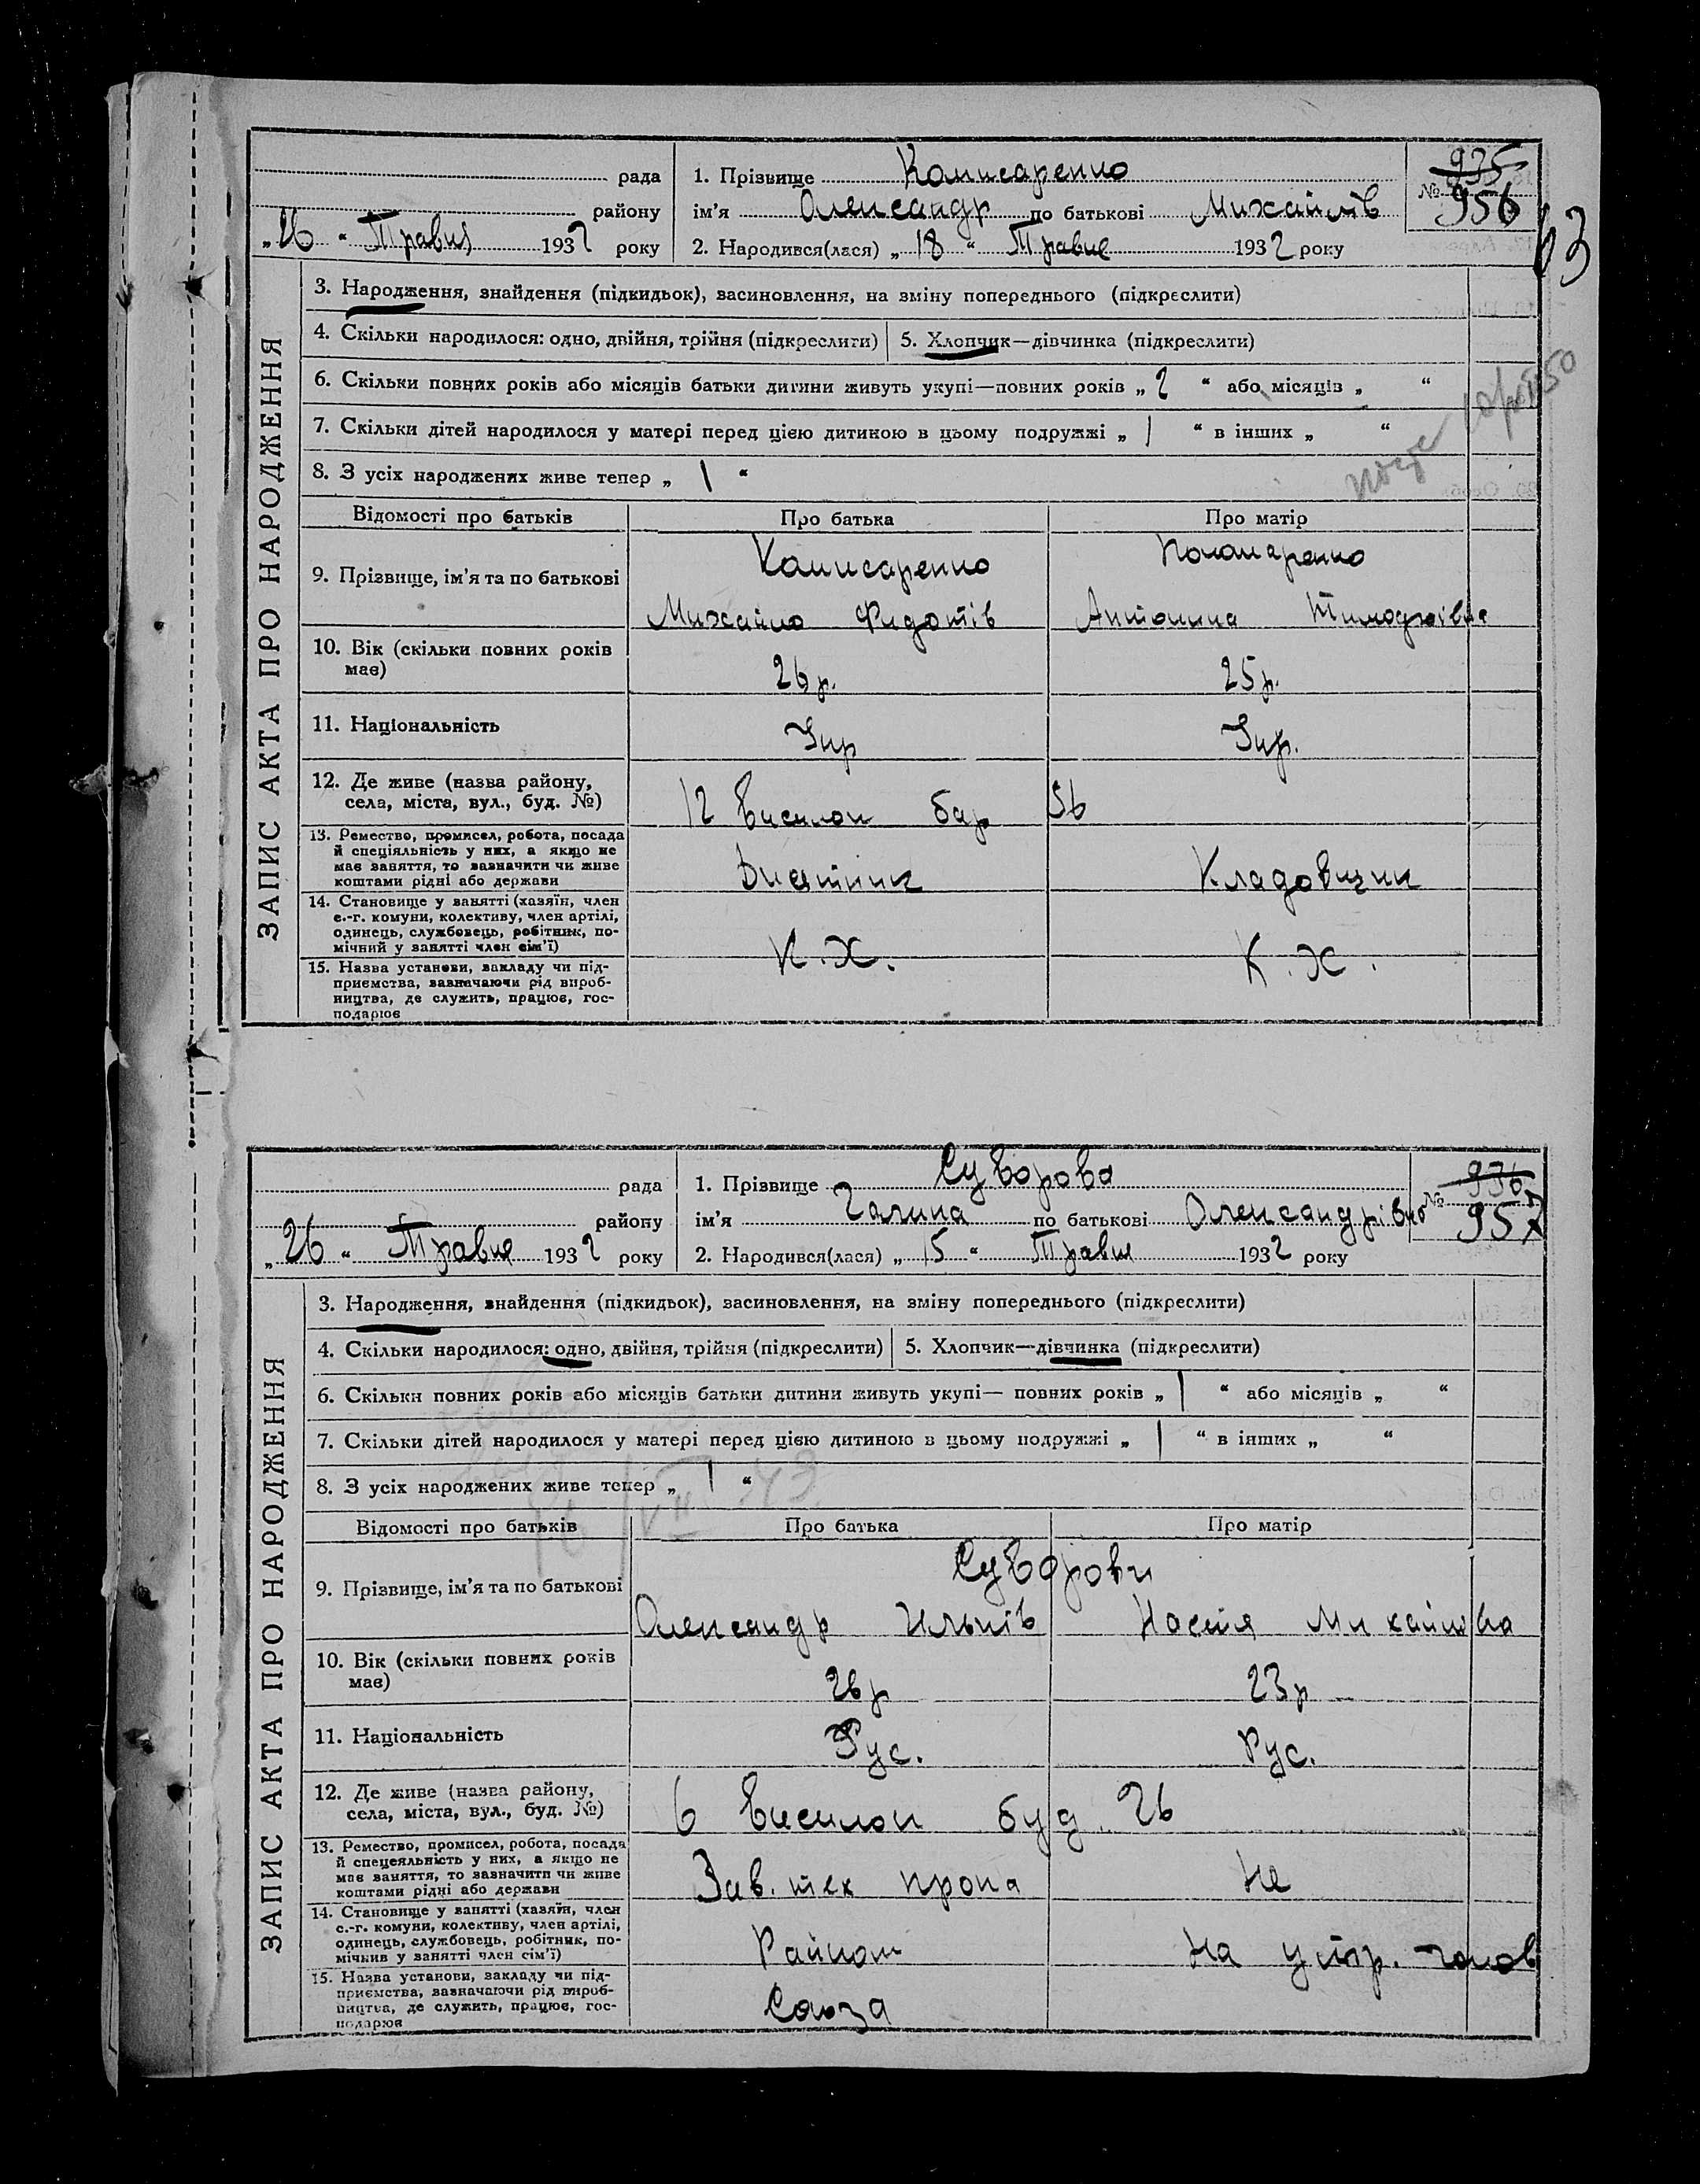 935
рада
1. Прізвище Комисаренко
№ 956
63
району
ім’я Олександр по батькові Михайлів
„26“ Травня 1932 року
2. Народився(лася) „18“ Травня 1932 року
ЗАПИС АКТА ПРО НАРОДЖЕННЯ
3. Народження, знайдення (підкидьок), засиновлення, на зміну попереднього (підкреслити)
4. Скільки народилося: одно, двійня, трійня (підкреслити)
5. Хлопчик—дівчинка (підкреслити)
6. Скільки повних років або місяців батьки дитини живуть укупі—повних років „2“ або місяців „ “
7. Скільки дітей народилося у матері перед цією дитиною в цьому подружжі „1“ в інших „ “
8. З усіх народжених живе тепер „1“
Відомості про батьків
Про батька
Про матір
9. Прізвище, ім’я та по батькові
Комисаренко
Михайло Федотів
Антонина
10. Вік (скільки повних років
має)
26р.
25р.
11. Національність
Укр
Укр.
12. Де живе (назва району,
села, міста, вул., буд. №)
12 Виселок бар 56
13. Ремество, промисел, робота, посада
й спеціяльність у них, а якщо не
має заняття, то зазначити чи живе
коштами рідні або держави
Кладовщик
14. Становище у занятті (хазяїн, член
с.-г. комуни, колективу, член артілі,
одинець, службовець, робітник, по-
мічний у занятті член сім’ї)
К.Х.
К.Х.
15. Назва установи, закладу чи під-
приємства, зазначаючи рід вироб-
ництва, де служить, працює, гос-
подарює
936
рада
1. Прізвище Суворова
№ 957
району
ім’я Галина по батькові Олександрівно
„26“ Травня 1932 року
2. Народився(лася) „15“ Травня 1932 року
ЗАПИС АКТА ПРО НАРОДЖЕННЯ
3. Народження, знайдення (підкидьок), засиновлення, на зміну попереднього (підкреслити)
4. Скільки народилося: одно, двійня, трійня (підкреслити)
5. Хлопчик—дівчинка (підкреслити)
6. Скільки повних років або місяців батьки дитини живуть укупі— повних років „1“ або місяців „ “
7. Скільки дітей народилося у матері перед цією дитиною в цьому подружжі „1“ в інших „ “
8. З усіх народжених живе тепер „1“
Відомості про батьків
Про батька
Про матір
9. Прізвище, ім’я та по батькові
Суворови
Олександр Ильків
Настя Михайлівна
10. Вік (скільки повних років
має)
26р
23р
11. Національність
Рус.
Рус.
12. Де живе (назва району,
села, міста, вул., буд. №)
6 Виселок буд. 26
13. Ремество, промисел, робота, посада
й спецеяльність у них, а якщо не
має заняття, то зазначити чи живе
коштами рідні або держави
Зав. тех
Не
14. Становище у занятті (хазяїн, член
с.-г. комуни, колективу, член артілі,
одинець, службовець, робітник, по-
мічний у занятті член сім’ї)
Райком
На утр. чолов
15. Назва установи, закладу чи під-
приємства, зазначаючи рід вироб-
ництва, де служить, працює, гос-
подарює
Союза